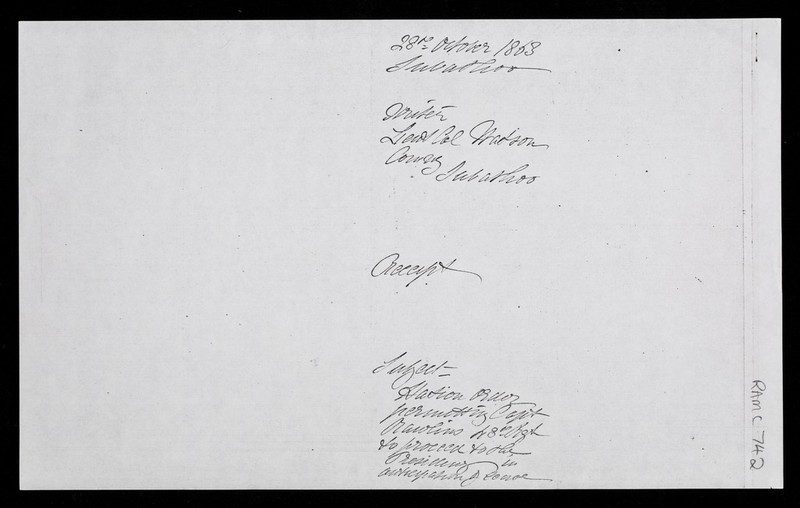 28th October 1863
Subathoo
Writer
Lieut Col Watson
Comdg
Subathoo
Receipt
Subject
Station Order
permitting Capt
Rawlins 48th Regt
to proceed to the
Presidency in
anticipation of leave
RAMC 742